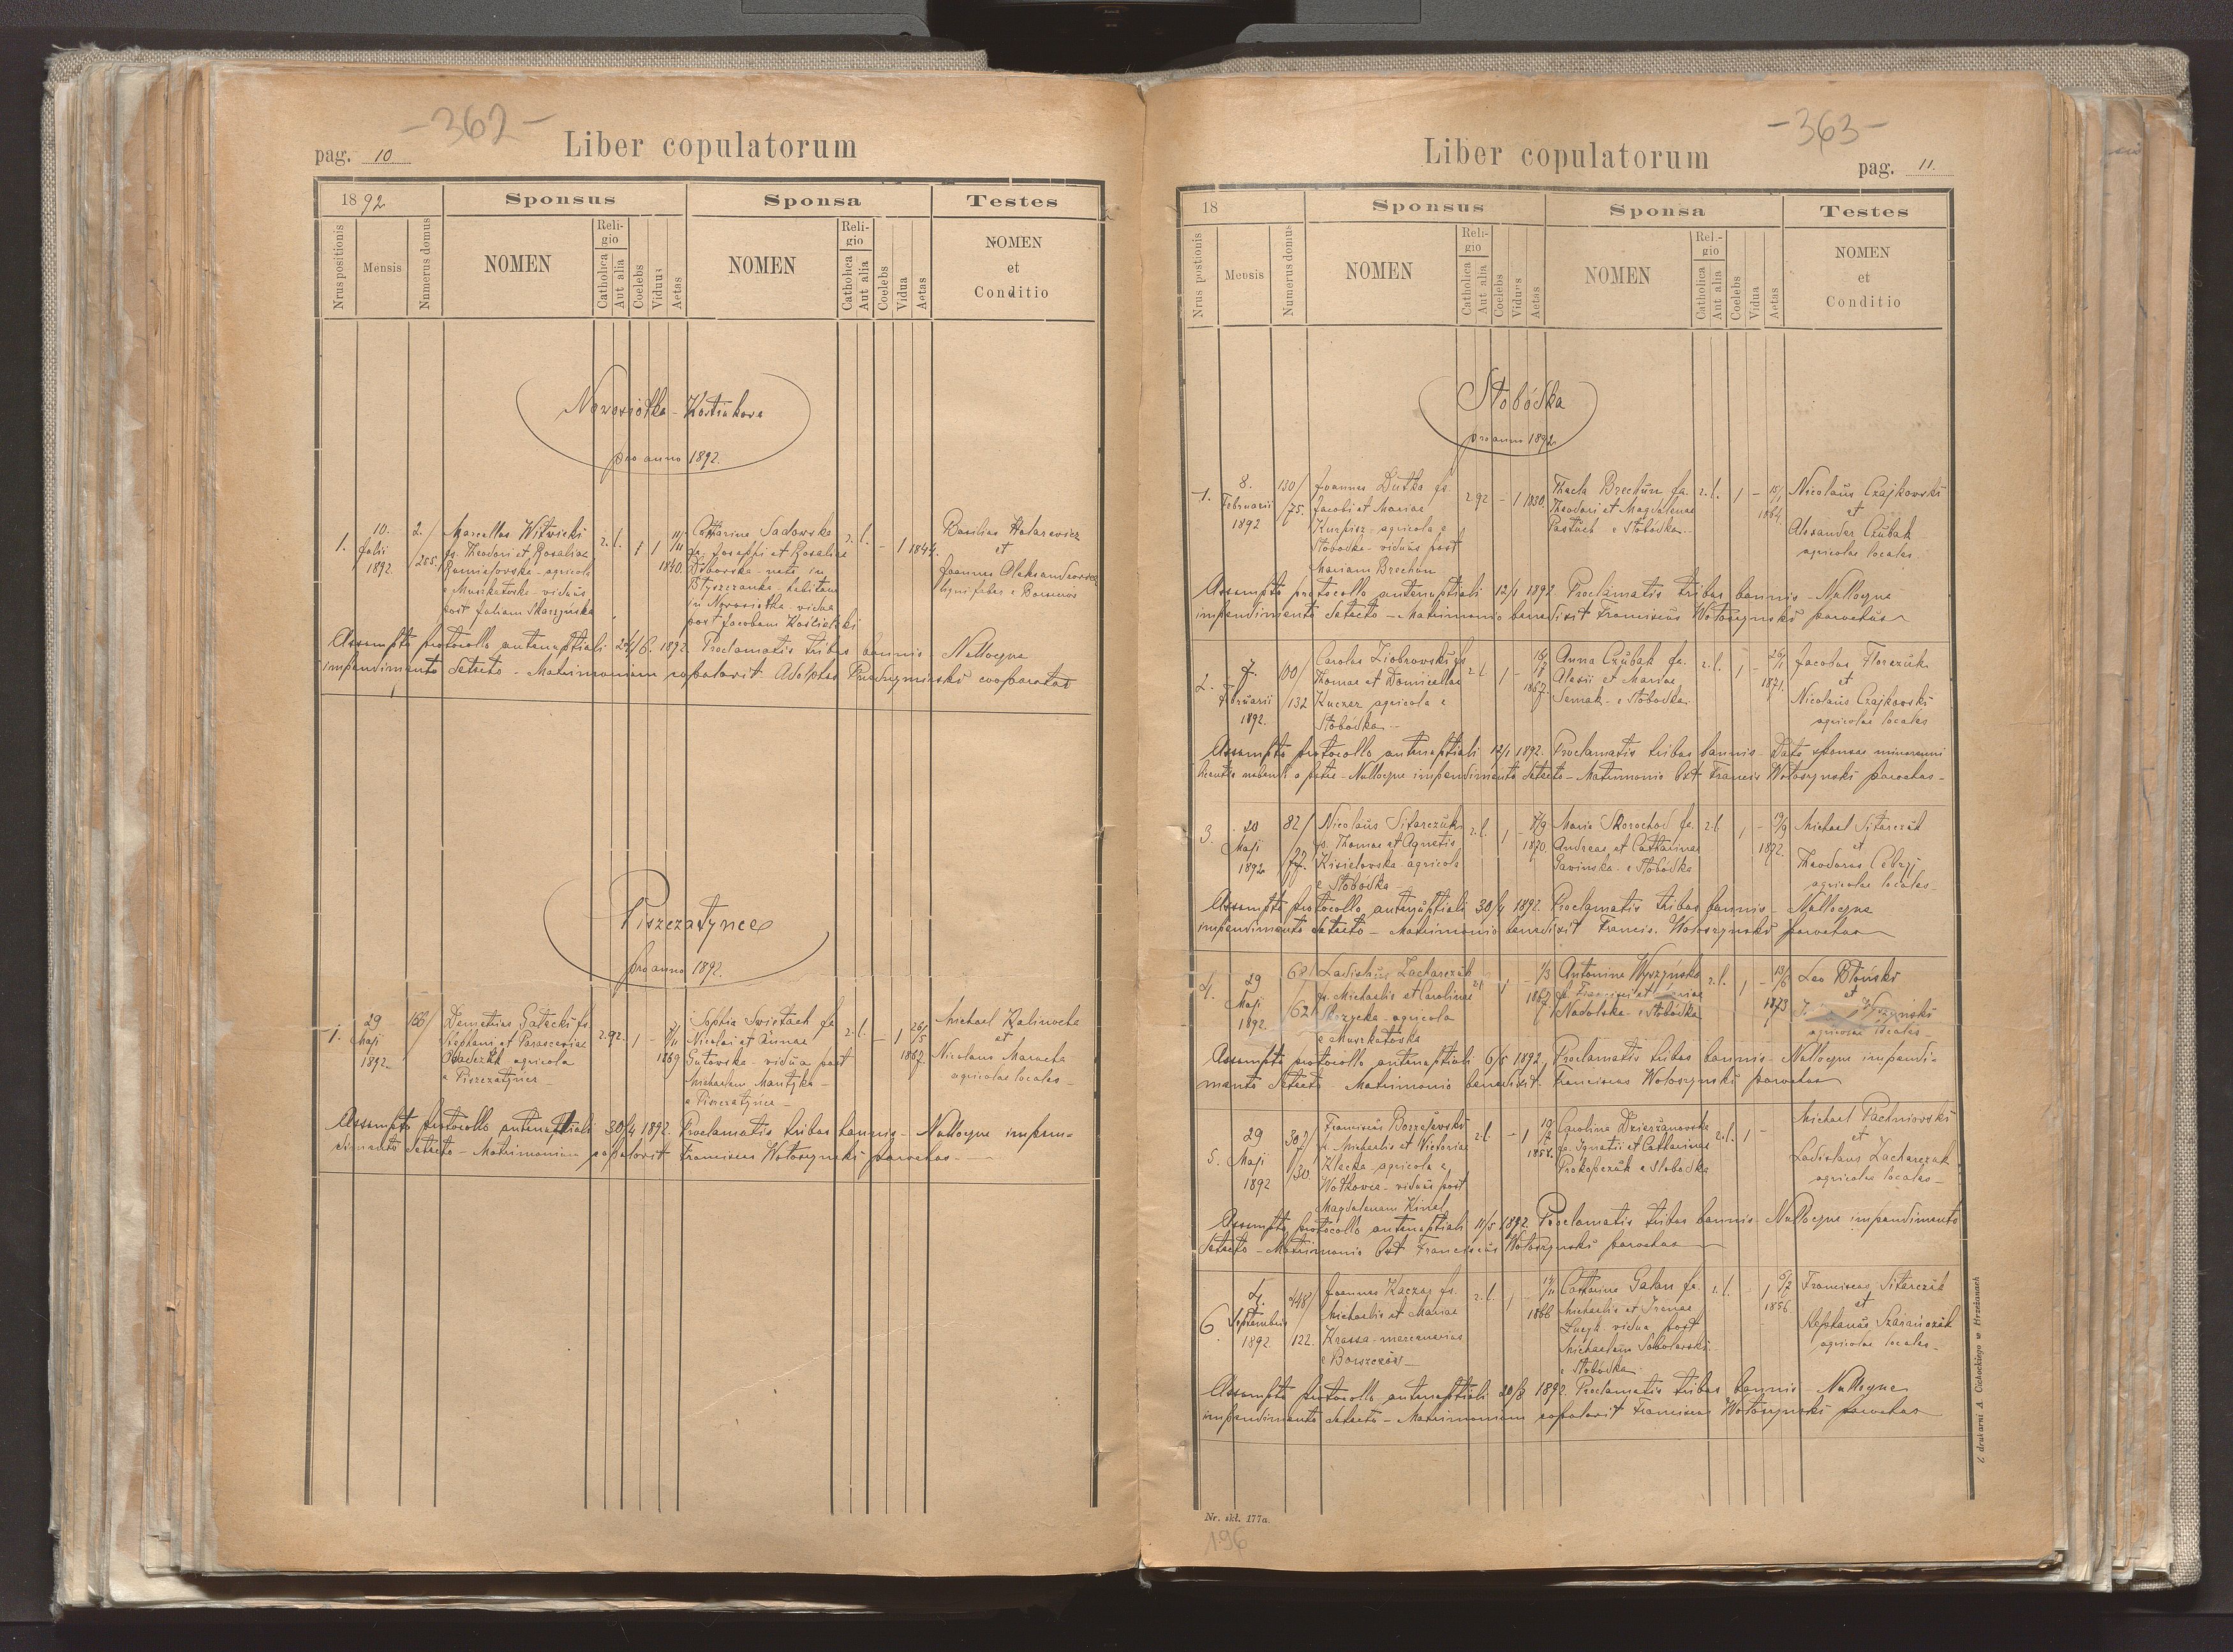 -362-
pag. 10
Liber copulatorum
1892
Sponsus
Sponsa
Testes
Nrus positionis
Mensis
Numerus domus
NOMEN
Religio
Catholica
Aut alia
Coelebs
Viduus
Aetas
NOMEN
Religio
Catholica
Aut alia
Coelebs
Vidua
Aetas
NOMEN
et
Conditio
Nowosiołka-Kostiukowa
pro anno 1892.
1.
10.
Julii
1892.
2./
255.
Marcellus Witwicki
fs. Theodori et Rosaliae
agricola
e Muszkatówka - viduus
post Juliam Skarzyńska
r. l.
1
1840.
Catharina Sadowska
fa. Josephi et Rosaliae
Dąborska - nata in
Błyszczanka - habitans
in Nowosiołka - vidua
post Jacobum
r. l.
-
1
1844.
Basilius
et
Joannes
ligni faber e Borszczów
Assumpto protocollo antenuptiali 24/6. 1892. Proclamatis tribus bannis - Nulloque
impendimento detecto - Matrimonium copulavit Adolphus cooparatus
Piszczatynce
pro anno 1892.
1.
29
Maji
1892.
166/
Demetrius Gałecki fs.
Stephani et Parasceviae
agricola
e Piszczatynce
r. gr.
1
-
7/11
1869
Sophia Świstach fa
Nicolai et Annae
Gutowska - vidua post
Michaelem Mantyka -
e Piszczatynce -
r. l.
-
1
26/5
1867.
Michael Kalinocha
et
Nicolaus Maracha
agricolae locales -
Assumpto protocollo antenuptiali 30/4 1892. Proclamatis tribus bannis - Nulloque impen=
dimento detecto - Matrimonium copulavit Franciscus Wołoszynski parochus. -
-363-
Liber copulatorum
pag. 11.
18
Sponsus
Sponsa
Testes
Nrus postionis
Mensis
Numerus domus
NOMEN
Religio
Catholica
Aut alia
Coelebs
Viduus
Aetas
NOMEN
Religio
Catholica
Aut alia
Coelebs
Vidua
Aetas
NOMEN
et
Conditio
Słobódka
pro anno 1892
1.
8.
Februarii
1892
130/
75.
Joannes Dutka fs.
Jacobi et Mariae
agricola e
Słobodka - viduus post
Mariam Brechun
r gr
-
1
1830.
Thecla Brechun fa.
Theodori et Magdalenae
Pastuch e Słobódka -
r. l.
1
-
15/1
1864.
Nicolaus Czajkowski
et
Alexander Czubak
agricolae locales
Assumpto protocollo antenuptiali 12/1 1892. Proclamatis tribus bannis - Nulloque
impendimento detecto - Matrimonio benedixit Franciscus Wołoszynski parochus
2.
7.
Februarii
1892.
100/
132
Carolus Ziobrowski fs
Thomae et Domicellae
Kuczer agricola e
Słobódka -
r l
1
-
1867.
Anna Czubak fa.
Alexii et Mariae
Semak - e Słobodka
r. l.
1
-
26/11
1871.
Jacobus Florczuk
et
Nicolaus Czajkowski
agricolae locales
Assumpto protocollo antenuptiali 12/1 1892. Proclamatis tribus bannis - Data sponsae minorenni
licentia nubendi a patre - Nulloque impendimento detecto - Matrimonio bxt Francis Wołoszynski parochus -
3.
20
Maji
1892
82/
77.
Nicolaus Sitarczuk
fs. Thomae et Agnetis
Kisielowska agricola
e Słobódka -
r. l.
1
-
7/9
1870
Maria Skorochod fa.
Andreae et Catharinae
Sawinska - e Słobódka
r l
1
-
19/9
1872.
Michael Sitarczuk
et
Theodorus Cebrij
agricolae locales -
Assumpto protocollo antenuptiali 30/4 1892. Proclamatis tribus bannis - Nulloque
impendimento detecto - Matrimonio benedixit Francis. Wołoszynski parochus
4.
29
Maji
1892.
68/
62
Ladislaus Zacharczuk
fs. Michaelis et Carolinae
agricola
e Muszkatówka
r l
1
-
1/3
1867.
Antonina Wyszyńska
fa Francisci et Mariae
Nadolska - e Słobódka
r. l.
1
-
13/6
1873
Leo Błoński
et
Wyszyński
agricolae locales -
Assumpto protocollo antenuptiali 6/5 1892, Proclamatis tribus bannis - Nulloque impendi-
mento detecto - Matrimonio benedixit Franciscus Wołoszynski parochus
5.
29
Maji
1892
307/
30.
Franciscus
fs. Michaelis et Victoriae
Klecka agricola e
Wołkowce - viduus post
Magdalenam Kinal
r. l.
-
1
1854.
Carolina Dzierzanowska
fa. Ignatii et Catharinae
Prokopczuk e Słobodka
r. l.
1
-
Michael Pachniowski
et
Ladislaus Zacharczuk
agricolae locales -
Assumpto protocollo antenuptiali 11/5 1892. Proclamatis tribus bannis - Nulloque impendimento
detecto - Matrimonio bxt Franciscus Wołoszynski parochus
6
4.
Septembris
1892.
448/
122.
Joannes Kaczor fs.
Michaelis et Mariae
Krassa - mercenarius
e Borszczów -
r. l.
1
-
1866
Catharina Galan fa.
Michaelis et Irenae
vidua post
Michaelem Sobolewski
e Słobódka
r. l.
-
1
5/2
1856
Franciscus Sitarczuk
et
Stephanus Szarańczuk
agricolae locales -
Assumpto protocollo antenuptiali 20/8 1892. Proclamatis tribus bannis - Nulloque
impendimento detecto - Matrimonium copulavit Franciscus Wołoszynski parochus
Nr. skł. 177a.
196
Z drukarni A. Cichockiego w Brzeżanach